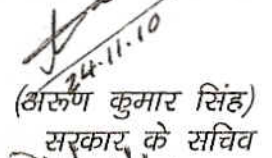 24.11.10
(अरूण कुमार सिंह)
सरकार के सचिव